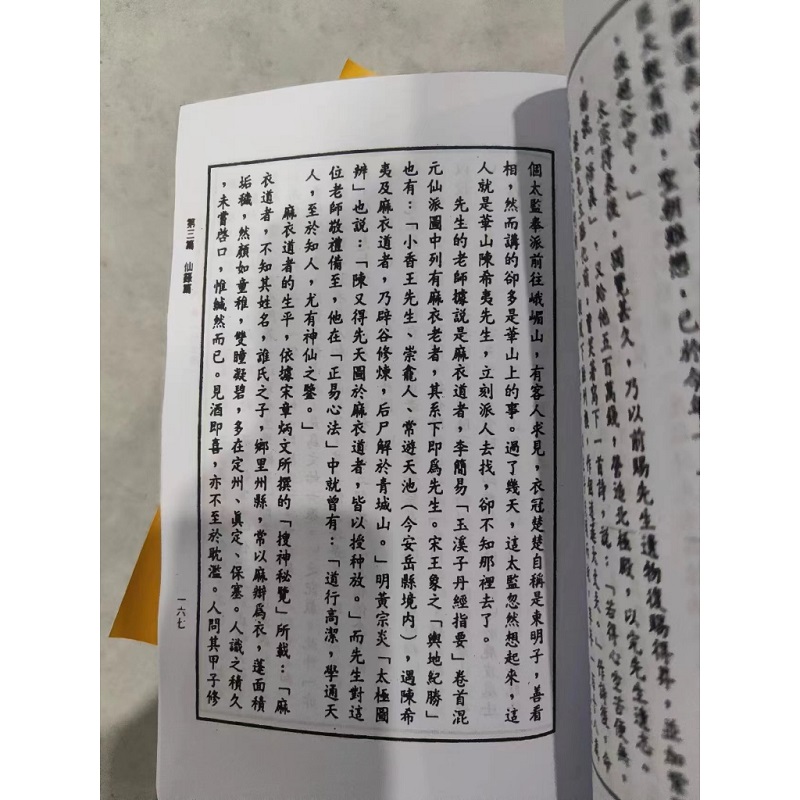 個太監奉派前往峨嵋山，有客人求見，衣冠楚楚自稱是東明子，善看
相，然而講的卻多是華山上的事。過了幾天，這太監忽然想起來，這
人就是華山陳希夷先生，立刻派人去找，卻不知那裡去了。
先生的老師據說是麻衣道者，李簡易「玉溪子丹經指要」卷首混
元仙派圖中列有麻衣老者，其系下即爲先生。宋王象之「輿地紀勝」
也有：「小香王先生、崇龕人、常遊天池（今安岳縣境內），遇陳希
夷及麻衣道者，乃辟谷修煉，后尸解於青城山。」明黃宗炎「太極圖
辨」也說：「陳又得先天圖於麻衣道者，皆以授种放。」而先生對這
位老師敬禮備至，他在「正易心法」中就曾有：「道行高潔，學通天
人，至於知人，尤有神仙之鑒。」
麻衣道者的生平，依據宋章炳文所撰的「搜神秘覽」所載：「麻
衣道者，不知其姓名，誰氏之子，鄉里州縣，常以麻辮爲衣，蓬面積
垢穢，然顔如童稚，雙瞳凝碧，多在定州、眞定、保塞。人識之積久
，未嘗啓口，惟緘然而已。見酒即喜，亦不至於耽濫。人問其甲子修
第三篇 仙蹤篇
一六七
，乃以前賜先生遺物復賜得昇，並加
又給他五百萬錢，營造北極殿，以完先生遺志。